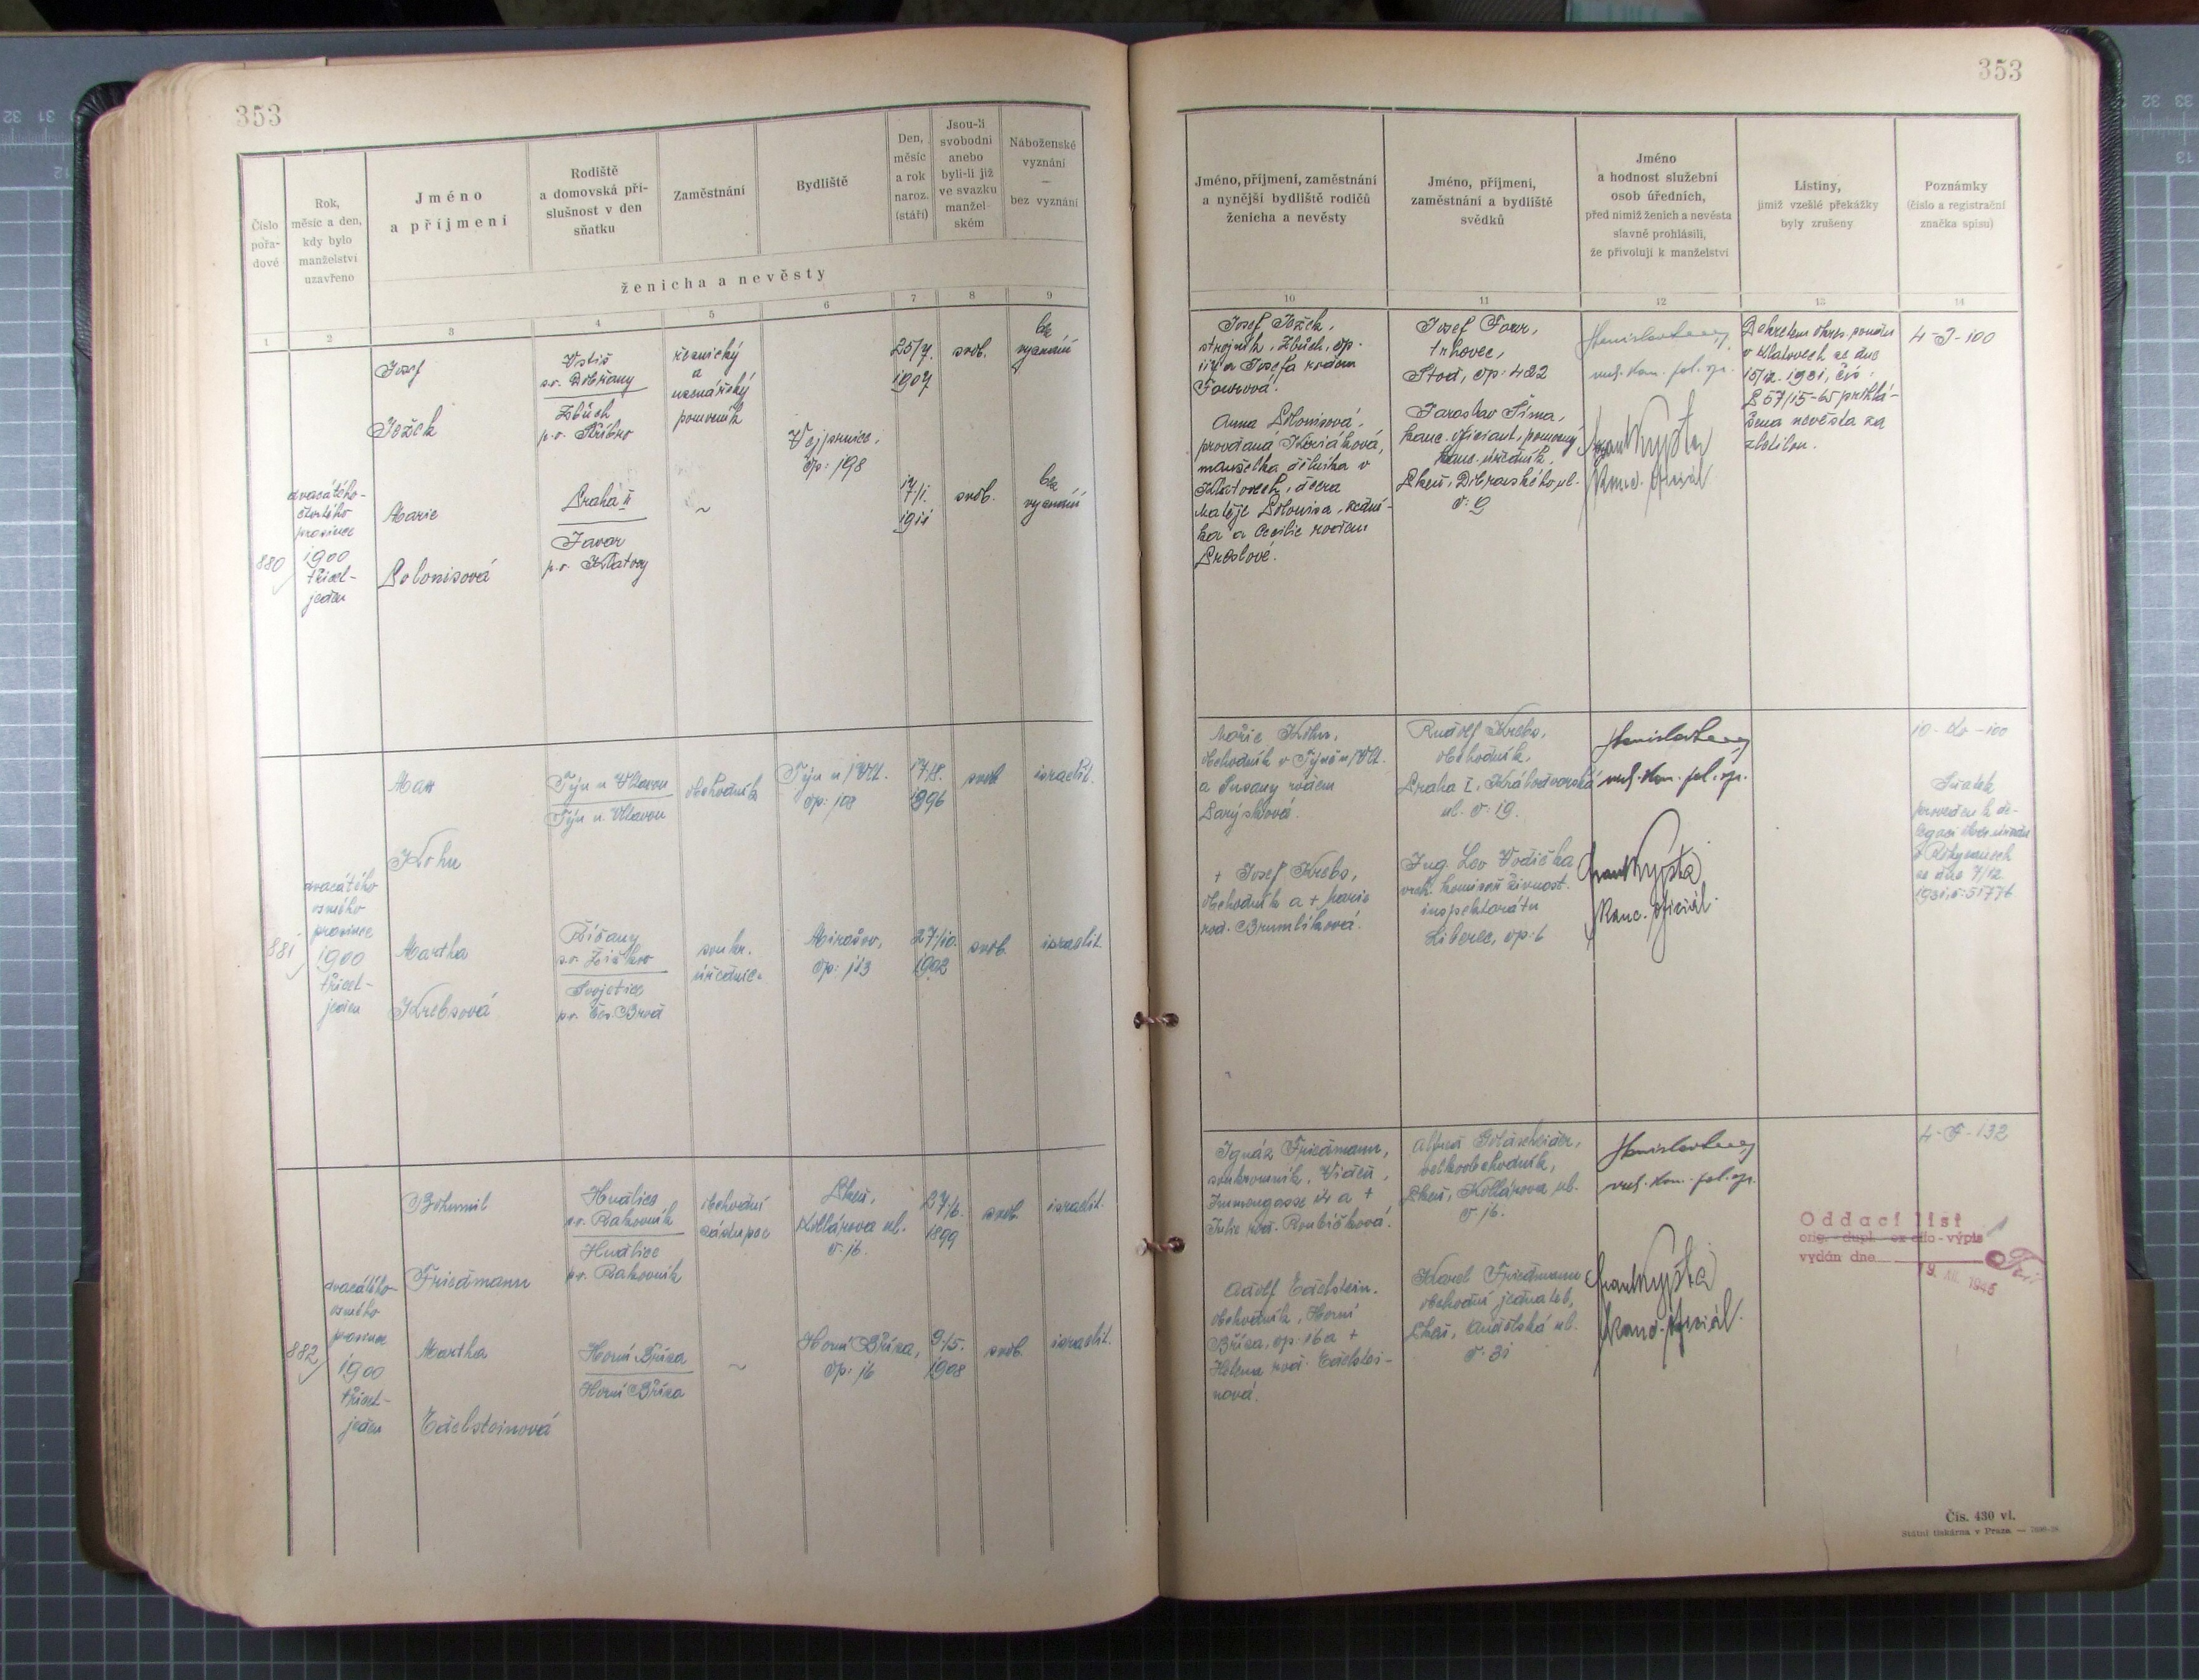 353
353
Číslo
pořa-
dové
Rok,
měsíc a den,
kdy bylo
manželství
uzavřeno
Jméno
a příjmení
Rodiště
a domovská pří-
slušnost v den
sňatku
Zaměstnání
Bydliště
Den,
měsíc
a rok
naroz.
(stáří)
Jsou-li
svobodni
anebo
byli-li již
ve svazku
manžel-
ském
Náboženské
vyznání
—
bez vyznání
ženicha a nevěsty
Jméno, příjmení, zaměstnání
a nynější bydliště rodičů
ženicha a nevěsty
Jméno, příjmení,
zaměstnání a bydliště
svědků
Jméno
a hodnost služební
osob úředních,
před nimiž ženich a nevěsta
slavně prohlásili,
že přivolují k manželství
Listiny,
jimiž vzešlé překážky
byly zrušeny
Poznámky
(číslo a registrační
značka spisu)
1 2 3 4 5 6 7 8 9
10 11 12 13 14
880
dvacátého-
čtvrtého
prosince
1900
třicet-
jeden
Josef
Ježek
Vstiš
p.o. Dobřany
Zbůch
p.o. Stříbro
řeznický
a
uzenářský
pomocník
Vejprnice,
čp: 198
25/7.
1907
svob.
bez
vyznání
Marie
Polonisová
Praha II
Javor
p.o. Klatovy
~
1911
svob.
bez
vyznání
Josef Ježek,
strojník, Zbůch, čp.
a Josefa rodem
Faurová.
Anna Polonisová,
provdaná
manželka dělníka v
Klatovech, dcera
Matěje Polonisa, zední-
ka a Cecilie rodem
Josef Faur,
trhovec,
Stod, čp: 422
Jaroslav Šíma,
kanc. oficiant, pomocný
kanc. úředník,
Plzeň,
č: 9
vrch. kom. pol. spr.
Frant. Vypšta
kanc. oficiál
Dekretem okres. soudu
v Klatovech ze dne
15/12. 1931, čís:
P 57/15-65 prohlá-
šena nevěsta za
zletilou.
4-J-100
881
dvacátého
osmého
prosince
1900
třicet-
jeden
Max
Kohn
Týn n. Vltavou
Týn n. Vltavou
obchodník
Týn n/Vlt.
čp: 108
17/8.
1896
svob.
israelit.
Martha
Krebsová
Říčany
p.o. Žižkov
Svojetice
p.o. Čes. Brod
soukr.
úřednice
Mirošov,
čp: 113
27/10.
1902
svob.
israelit.
Kohn,
obchodník v Týně n/Vlt.
a Susany rodem
+ Josef Krebs,
obchodník a + Marie
rod. Brumlíková.
Rudolf Krebs,
obchodník,
Praha I. Královodvorská
ul. č: 19.
Ing. Leo Vodička
vrch. komisař živnost.
inspektorátu
Liberec, čp: 6
vrch. kom. pol. spr.
Frant. Vypšta
kanc. oficiál.
10-Ko-100
Sňatek
proveden k de-
legaci okres. úřadu
v Rokycanech
ze dne 7/12
882
dvacátého
osmého
prosince
1900
třicet-
jeden
Bohumil
Friedmann
Hvdlice
p.o. Rakovník
Hvdlice
p.o. Rakovník
obchodní
zástupce
Plzeň,
Kollárova ul.
č: 16.
27/6.
1899
svob.
israelit.
Martha
Edelsteinová
Horní Bříza
Horní Bříza
~
Horní Bříza,
čp: 16
9/5.
1908
svob.
israelit.
Ignáz Friedmann,
soukromník, Vídeň,
a +
Julie rod. Roubíčková.
Adolf Edelstein.
obchodník, Horní
Bříza, čp: 16 a +
Helena rod. Edelstei-
nová.
Alfred Goldscheider,
velkoobchodník,
Plzeň, Kollárova ul.
č: 16.
Karel Friedmann
obchodní jednatel,
Plzeň, Andělská ul.
č: 31
vrch. kom. pol. spr.
Frant. Vypšta
kanc. oficiál.
4-F-132
Oddací list
orig. - dupl. - ex offo - výpis
vydán dne
19. XII. 1945
Čís. 430 vl.
Státní tiskárna v Praze. —